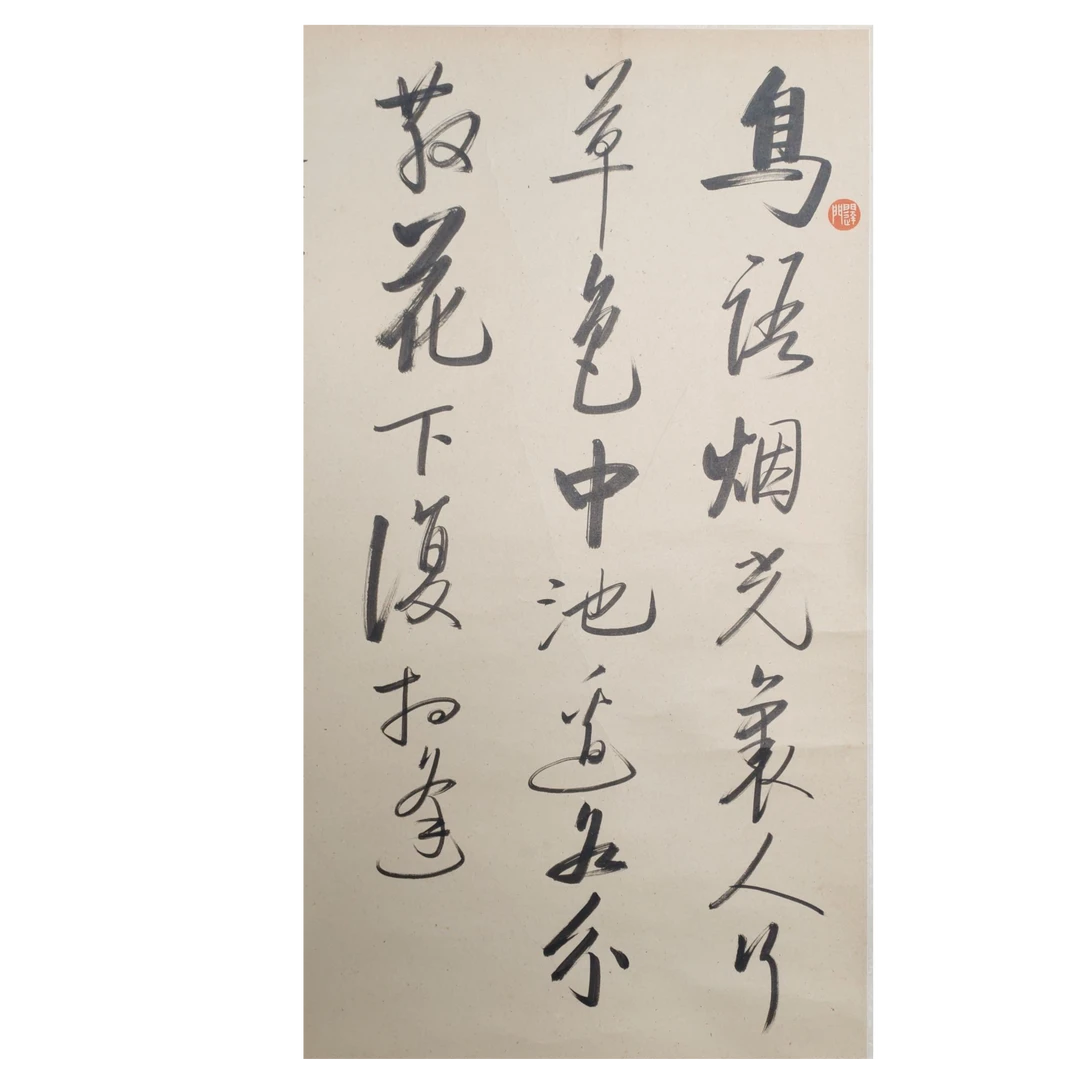 鳥語烟光裏人行
草色中池邊各分
散花下復相逢